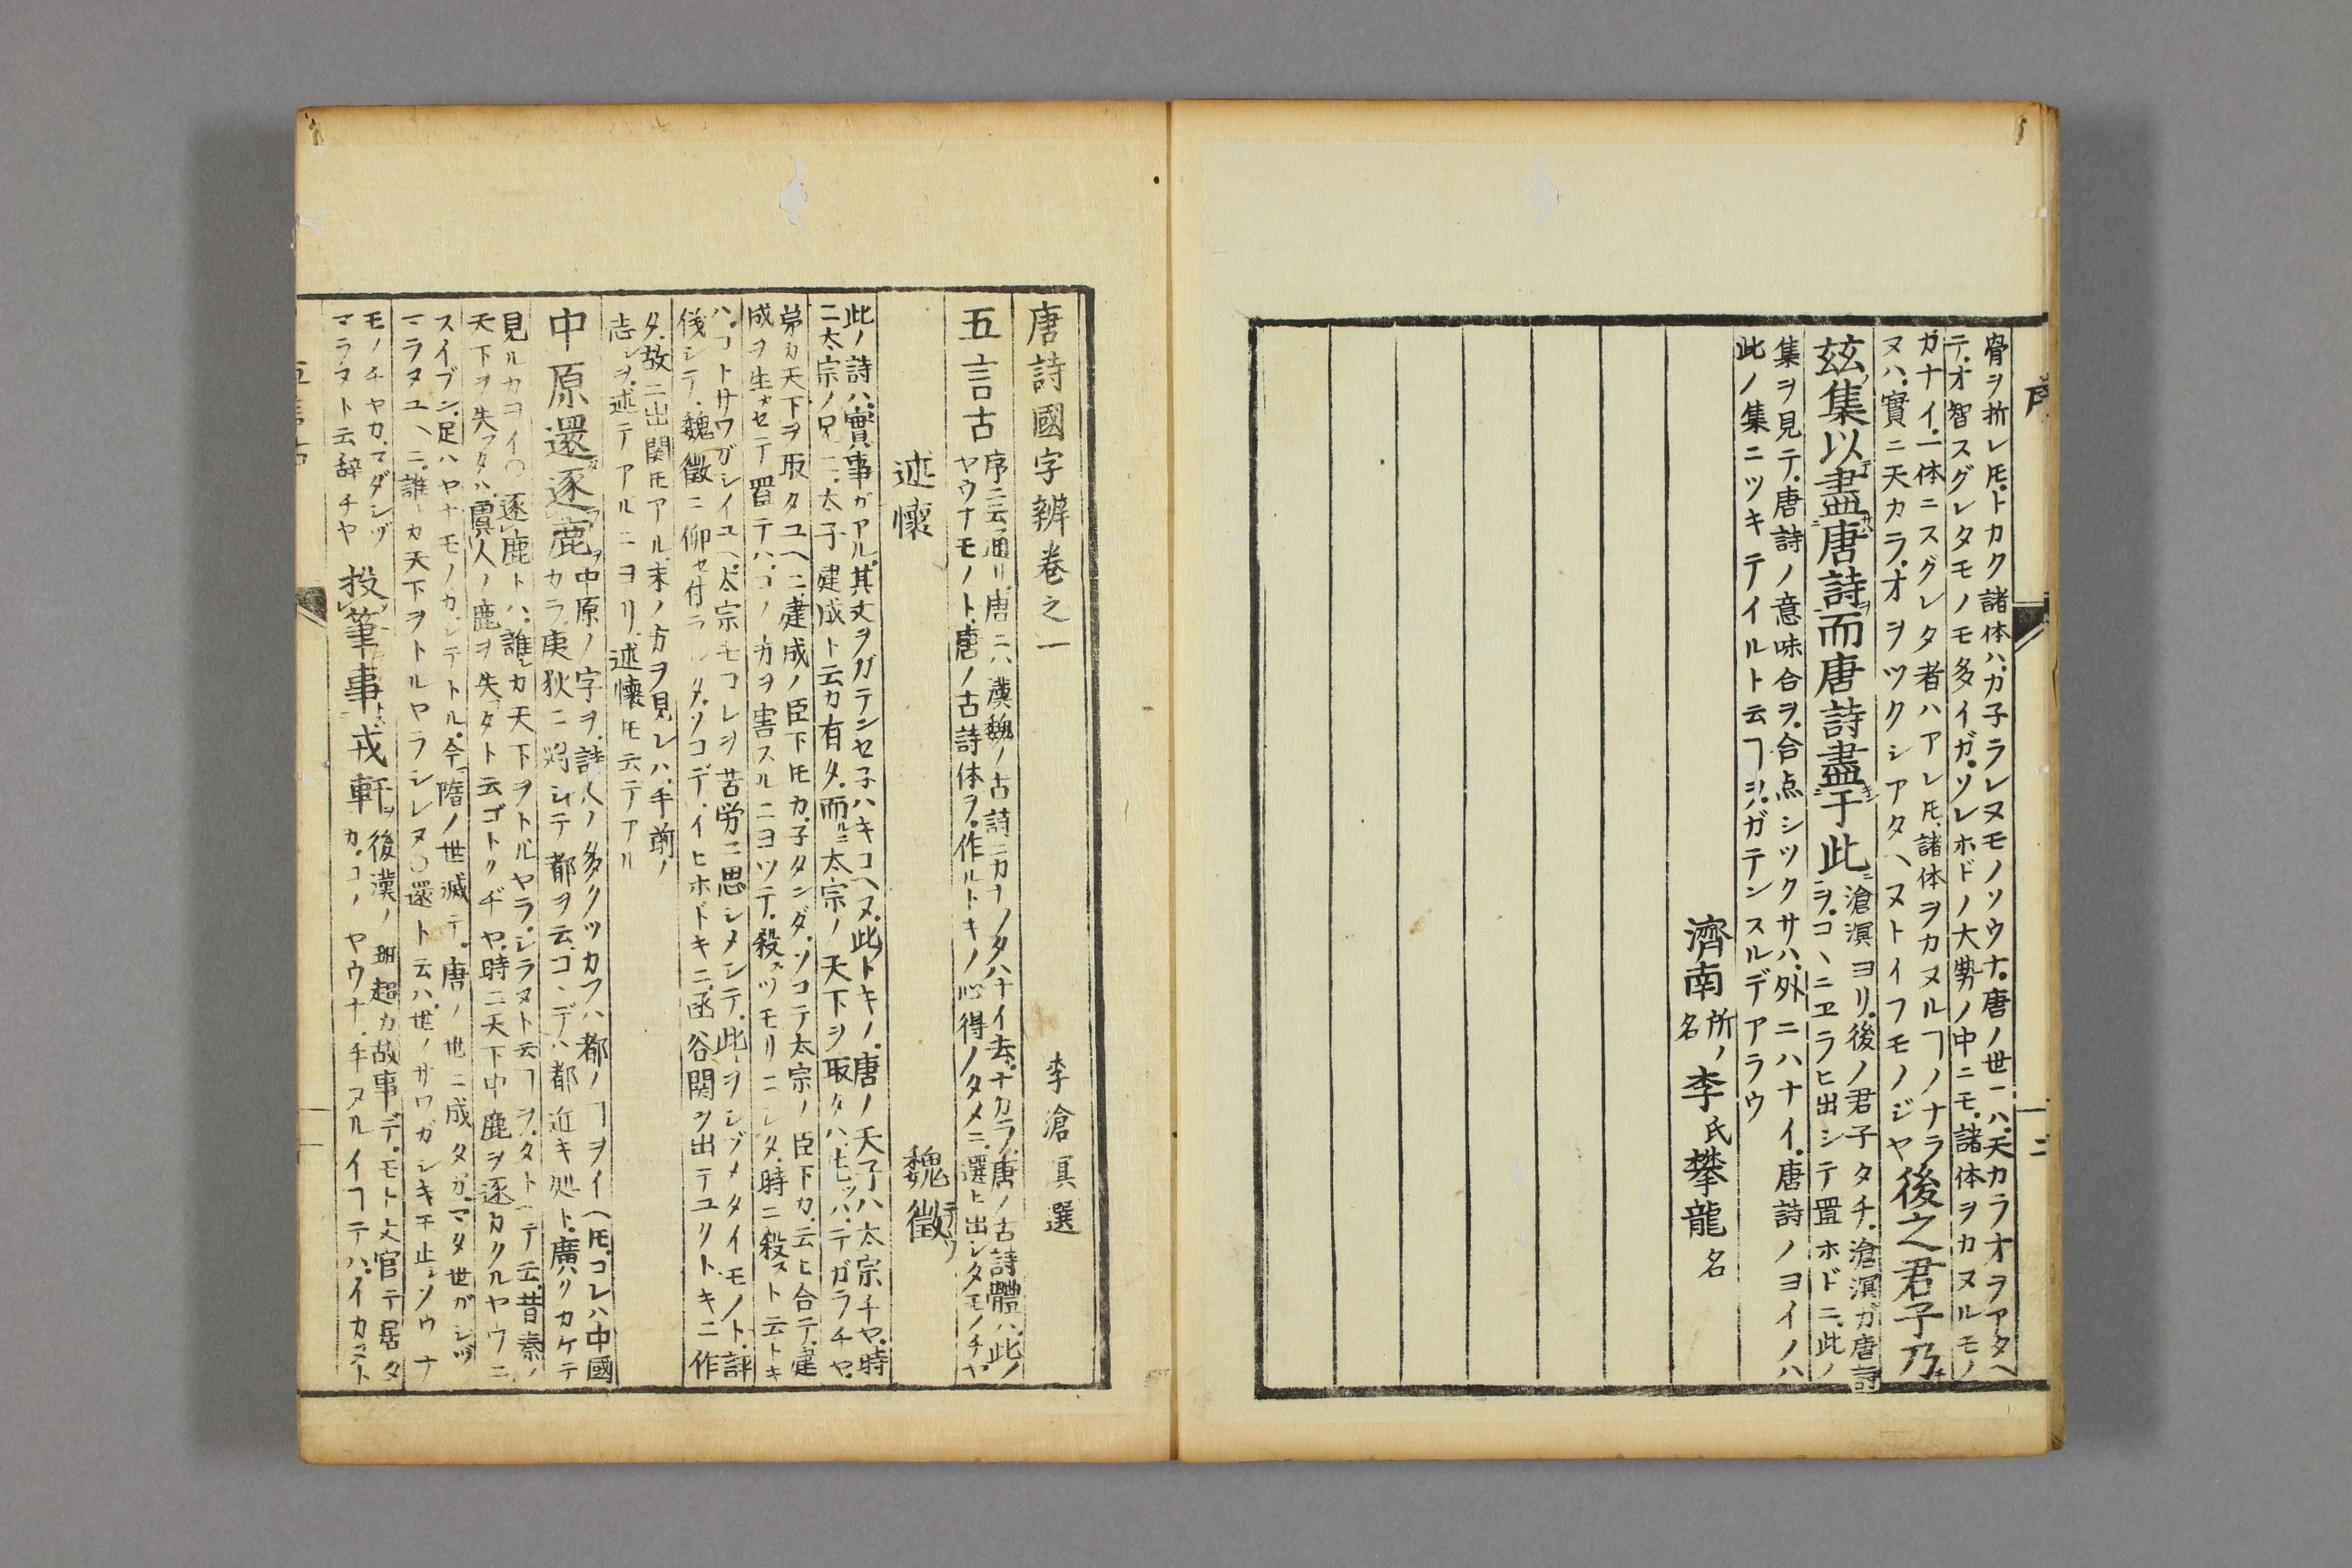 序
骨ヲ折レ𪜈トカク諸体ハカ子ラレヌモノソウナ唐ノ世ニハ天カラオヲアタヘ
テオ智スグレタモノモ多イガソレホドノ大勢ノ中ニモ諸体ヲカヌルモノ
ガナイ一体ニスグレタ者ハアレ𪜈諸体ヲカヌルヿノナラ
ヌハ實ニ天カラオヲツクシアタヘヌトイフモノジヤ
後之君子乃
茲集以盡唐詩而唐詩盡于此
滄溟ヨリ後ノ君子タチ滄溟ガ唐詩
ヲコヽニヱラヒ出シテ置ホドニ此ノ
集ヲ見テ唐詩ノ意味合ヲ合点シツクサハ外ニハナイ唐詩ノヨイノハ
此ノ集ニツキテイルト云ヿヲガテンスルデアラウ
濟南所ノ名李氏攀龍名
唐詩國字辨卷之一
李滄溟選
五言古
序ニ云通リ唐ニハ漢魏ノ古詩ニカナノタハナイ去ナカラ唐ノ古詩體ハ此ノ
ヤウナモノト唐ノ古詩体ヲ作ルトキノ心得ノタメニ選ヒ出シタモノチヤ
述懷
魏徵
此ノ詩ハ實事ガアル其丈ヲガテンセ子ハキコヘヌ此トキノ唐ノ天子ハ太宗チヤ時
ニ太宗ノ兄ニ太子建成ト云カ有タ而ルニ太宗ノ天下ヲ取タハ七ツハテガラチヤ
弟カ天下ヲ取タユヘニ建成ノ臣下𪜈カ子タンダソコテ太宗ノ臣下カ云ヒ合テ建
成ヲ生ヶセテ置テハコノ方ヲ害スルニヨツテ殺スツモリニシタ時ニ殺スト云トキ
ハコトサワガシイユヘ太宗モコレヲ苦労ニ思シメシテ此ヲシヅメタイモノト評
儀シテ魏徵ニ仰セ付ラレタソコデイヒホドキニ函谷関ヲ出テユクトキニ作
タ故ニ出関𪜈アル末ノ方ヲ見レハ手前ノ
志シヲ述テアルニヨリ述懷𪜈云テアル
中原還逐鹿
中原ノ字ヲ詩人ノ多クツカフハ都ノヿヲイヘ𪜈コレハ中國
カラ夷狄ニ對シテ都ヲ云コヽデハ都近キ処ト廣クカケテ
見ルカヨイ○逐鹿トハ誰カ天下ヲトルヤラシラヌト云ヿヲタトヘテ云昔秦ノ
天下ヲ失フタハ虞人ノ鹿ヲ失タト云ゴトクヂヤ時ニ天下中鹿ヲ逐カクルヤウニ
スイブン足ハヤナモノカシテトル今隋ノ世滅テ唐ノ世ニ成タガマタ世ガシヅ
マラヌユヘニ誰カ天下ヲトルヤラシレヌ○還ト云ハ世ノサワガシキモ止ソウナ
モノチヤカマダシヅ
マラヌト云辞チヤ
投筆事戎軒
後漢ノ班超カ故事デモト文官テ居タ
カコノヤウナ手ヌルイヿテハイカヌト